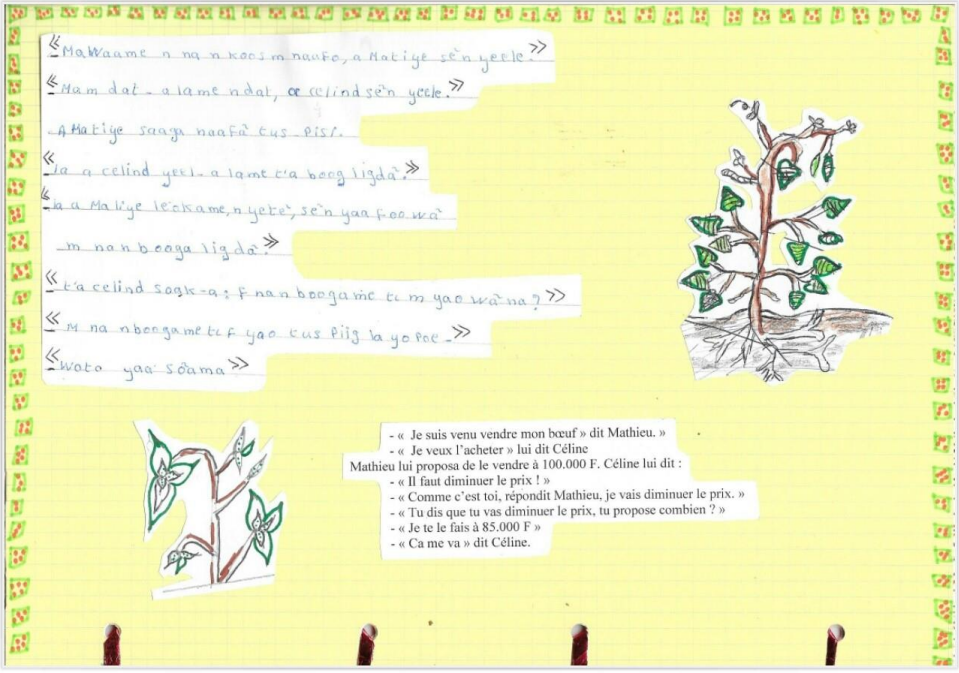 « Mawaame n na n koos m naafo, a Matiye sẽ'n yeele. »
« Mam dat-a lame n dat, a celind sẽ'n yeele. »
- A Matiye saaga naafã tus-pisi.
« la a celind yeel-a lame t'a boog ligdã. »
« la a Matiye leokame, n yetẽ, sẽ'n yaa foo wã
- m nan booga ligdã. »
« t'a celind sogk-a: F nan boogame ti m yao wãna? »
« M na n boogame ti F yao tus piig la yopoe. »
« Woto yaa sõama »
- « Je suis venu vendre mon bœuf » dit Mathieu. »
- « Je veux l’acheter » lui dit Céline
Mathieu lui proposa de le vendre à 100.000 F. Céline lui dit :
- « Il faut diminuer le prix ! »
- « Comme c’est toi, répondit Mathieu, je vais diminuer le prix. »
- « Tu dis que tu vas diminuer le prix, tu propose combien ? »
- « Je te le fais à 85.000 F »
- « Ca me va » dit Céline.